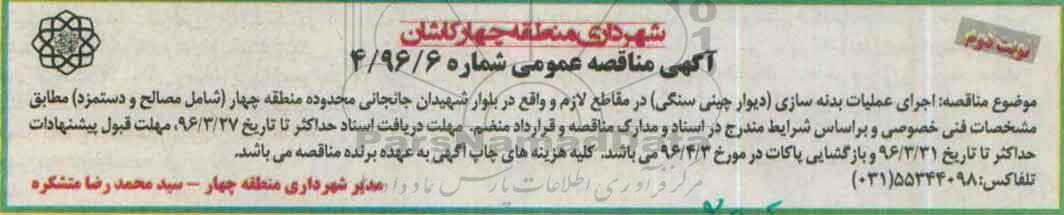 نوبت دوم
شهرداری منطقه چهار کاشان
آگهی مناقصه عمومی شماره ۴/۹۶/۶
موضوع مناقصه: اجرای عملیات بدنه سازی (دیوار چینی سنگی) در مقاطع لازم و واقع در بلوار شهیدان جانجانی محدوده منطقه چهار (شامل مصالح و دستمزد) مطابق
مشخصات فنی خصوصی و براساس شرایط مندرج در اسناد و مدارک مناقصه و قرارداد منضم. مهلت دریافت اسناد حداکثر تا تاریخ ۹۶/۳/۲۷، مهلت قبول پیشنهادات
حداکثر تا تاریخ ۹۶/۳/۳۱ و بازگشایی پاکات در مورخ ۹۶/۴/۳ می باشد. کلیه هزینه های چاپ آگهی به عهده برنده مناقصه می باشد.
تلفاکس: ۵۵۳۴۴۰۹۸(۰۳۱)
مدیر شهرداری منطقه چهار – سید محمد رضا متشکره
مرکز فرآوری اطلاعات پارس نماد داده